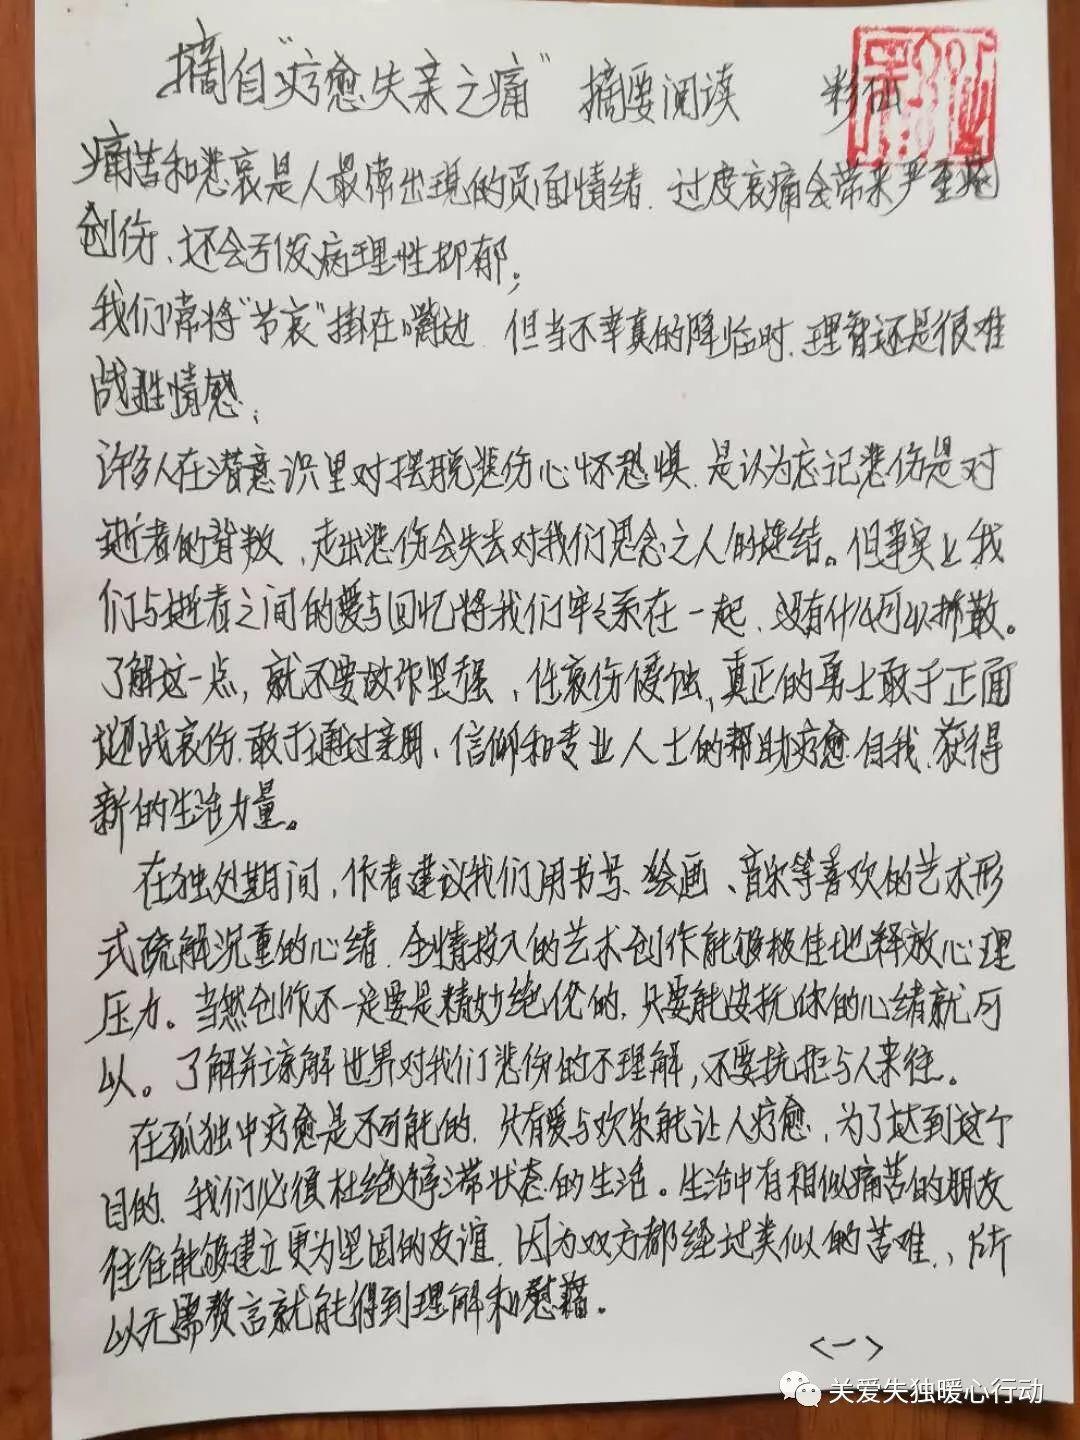 摘自“疗愈失亲之痛” 摘要阅读 彩仙
痛苦和悲哀是人最常出现的负面情绪.过度哀痛会带来严重的
创伤、还会引发病理性抑郁;
我们常将“节哀”掛在嘴边.但当不幸真的降临时.理智还是很难
战胜情感;
许多人在潜意识里对摆脱悲伤心怀恐惧.是认为忘记悲伤是对
逝者的背叛、走出悲伤会失去对我们思念之人的连结。但事实上我
们与逝者之间的爱与回忆将我们牢牢系在一起、没有什么可以拆散。
了解这一点，就不要故作坚强、任哀伤侵蚀、真正的勇士敢于正面
迎战哀伤.敢于通过亲朋、信仰和专业人士的帮助疗愈自我.获得
新的生活力量。
在独处期间，作者建议我们用书写、绘画、音乐等喜欢的艺术形
式疏解沉重的心绪.全情投入的艺术创作能够极佳地释放心理
压力。当然创作不一定要是精妙绝伦的，只要能安抚你的心绪就可
以。了解并谅解世界对我们悲伤的不理解，不要抗拒与人来往。
在孤独中疗愈是不可能的.只有爱与欢乐能让人疗愈，为了达到这个
目的、我们必须杜绝停滞状态的生活。生活中有相似痛苦的朋友
往往能够建立更为坚固的友谊.因为双方都经过类似的苦难、所
以无需赘言就能得到理解和慰藉。
<一>
关爱失独暖心行动